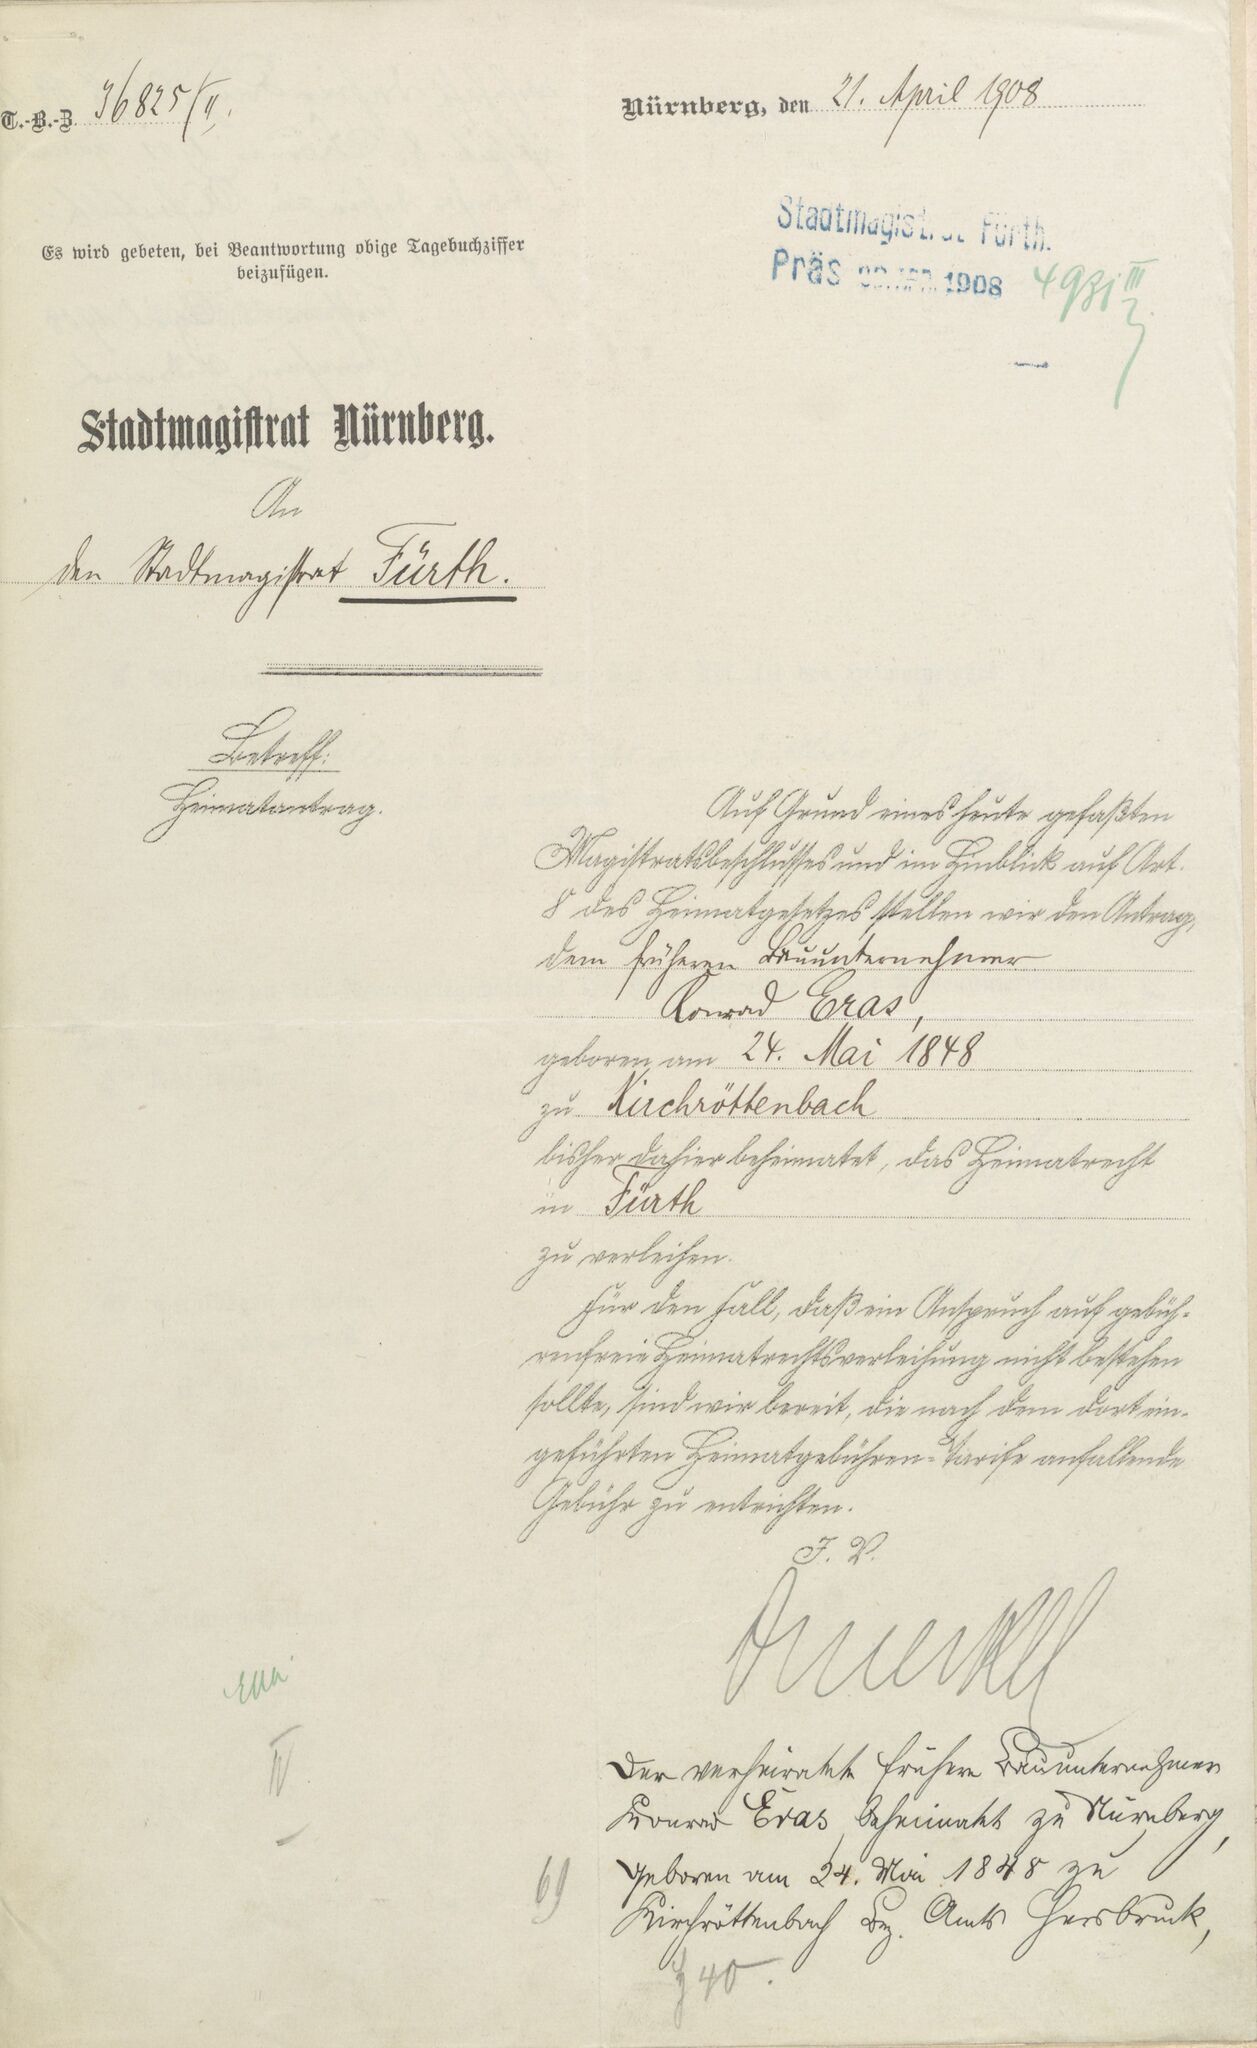 T.-B.-Z. 36825/II.
Nürnberg, den 21. April 1908
Es wird gebeten, bei Beantwortung obige Tagebuchziffer
beizufügen.
Stadtmagistrat Fürth.
Präs 1908
Stadtmagistrat Nürnberg.
An
den Stadtmagistrat Fürth.
Betreff:
Heimatantrag.
Auf Grund eines heute gefaßten
Magistratsbeschlusses und im Hinblick auf Art.
8 des Heimatgesetzes stellen wir den Antrag,
dem früheren Bauunternehmer
Konrad Eras,
geboren am 24. Mai 1848
zu Kirchröttenbach
bisher dahier beheimatet, das Heimatrecht
in Fürth
zu verleihen.
Für den Fall, daß ein Anspruch auf gebüh-
renfreie Heimatrechtsverleihung nicht bestehen
sollte, sind wir bereit, die nach dem dort ein-
geführten Heimatgebühren-Tarife anfallende
Gebühr zu entrichten.
J. V.
IV.
Der verheiratete frühere Bauunternehmer
Konrad Eras, beheimatet zu Nürnberg,
geboren am 24. Mai 1848 zu
Kirchröttenbach Bez. Amts Hersbruck,
69
40.